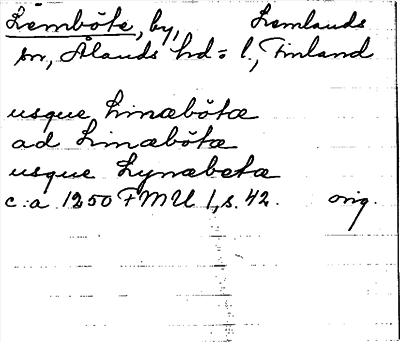 Lemböte, by, Lemlands
sn, Ålands hd = l., Finland
usque Linæbötæ
ad Linæbötæ
usque Lynæbetæ
c:a 1250 FMU 1, s. 42. orig.